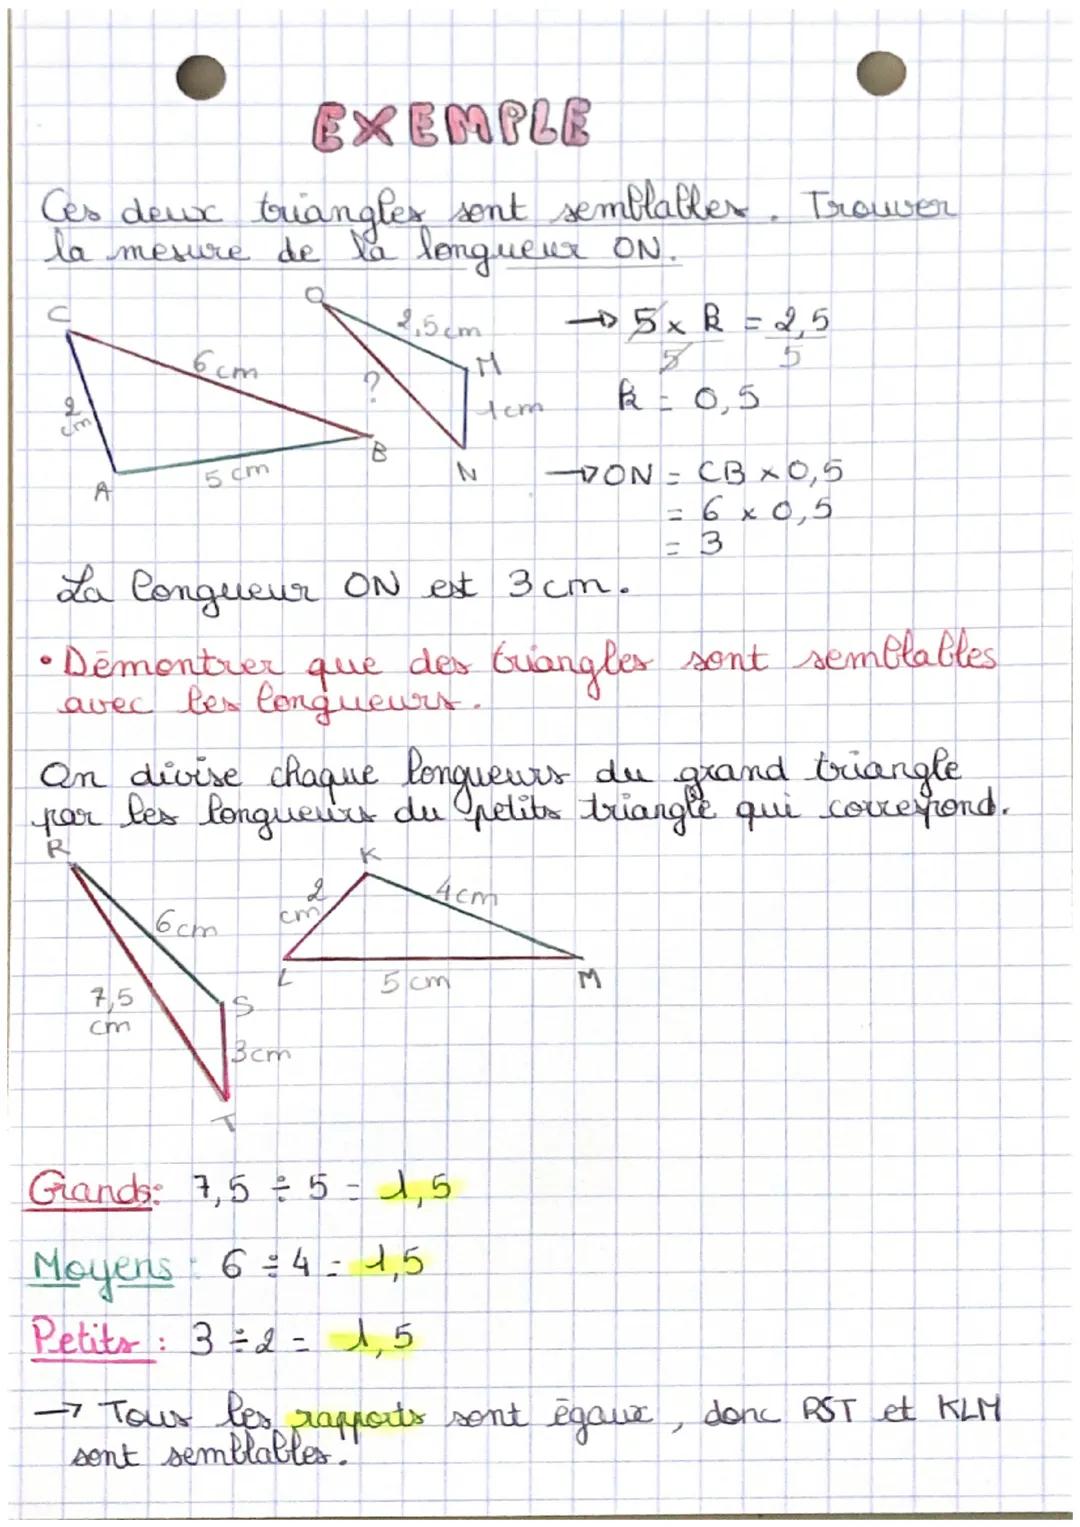 EXEMPLE
Ces deux triangles sont semblables. Trouver
la mesure de la longueur ON.
C
6 cm
2
cm
A
5 cm
B
O
2,5 cm
M
?
1 cm
N
→ 5 x k = 2,5
5 5
k = 0,5
→ ON = CB x 0,5
= 6 x 0,5
= 3
La longueur ON est 3 cm.
• Démontrer que des triangles sont semblables
avec les longueurs.
On divise chaque longueurs du grand triangle
par les longueurs du petits triangle qui correspond.
R
6 cm
7,5
cm
S
3 cm
T
K
2
cm
4 cm
L
5 cm
M
Grands: 7,5 ÷ 5 = 1,5
Moyens : 6 ÷ 4 = 1,5
Petits : 3 ÷ 2 = 1,5
→ Tous les rapports sont égaux, donc RST et KLM
sont semblables.